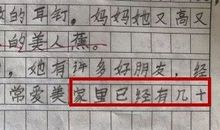 的耳钉。妈妈她又高又
的美人蕉。
，她有许多好朋友，经
常爱美家里已经有几十